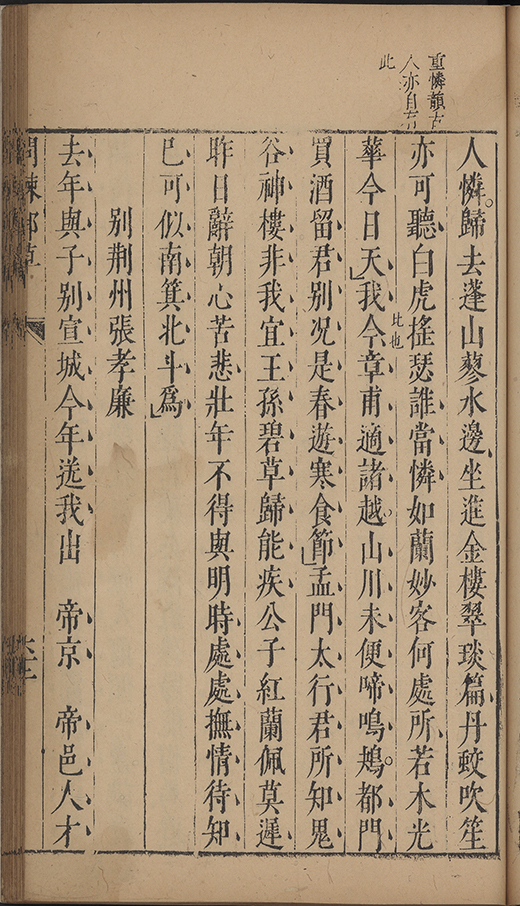 重憐韻古
人亦自有
此
人憐歸去蓬山蓼水邊坐進金樓翠琰篇丹蛟吹笙
亦可聽白虎搖瑟誰當憐如蘭妙客何處所若木光
此也
華今日天我今章甫適諸越山川未便啼鳴鴂都門
買酒留君別况是春遊寒食節孟門太行君所知鬼
谷神樓非我宜王孫碧草歸能疾公子紅蘭佩莫遲
昨日辭朝心苦悲壯年不得與明時處處撫情待知
已可似南箕北斗爲
別荆州張孝廉
去年與子別宣城今年送我出 帝京 帝邑人才
問棘郵草